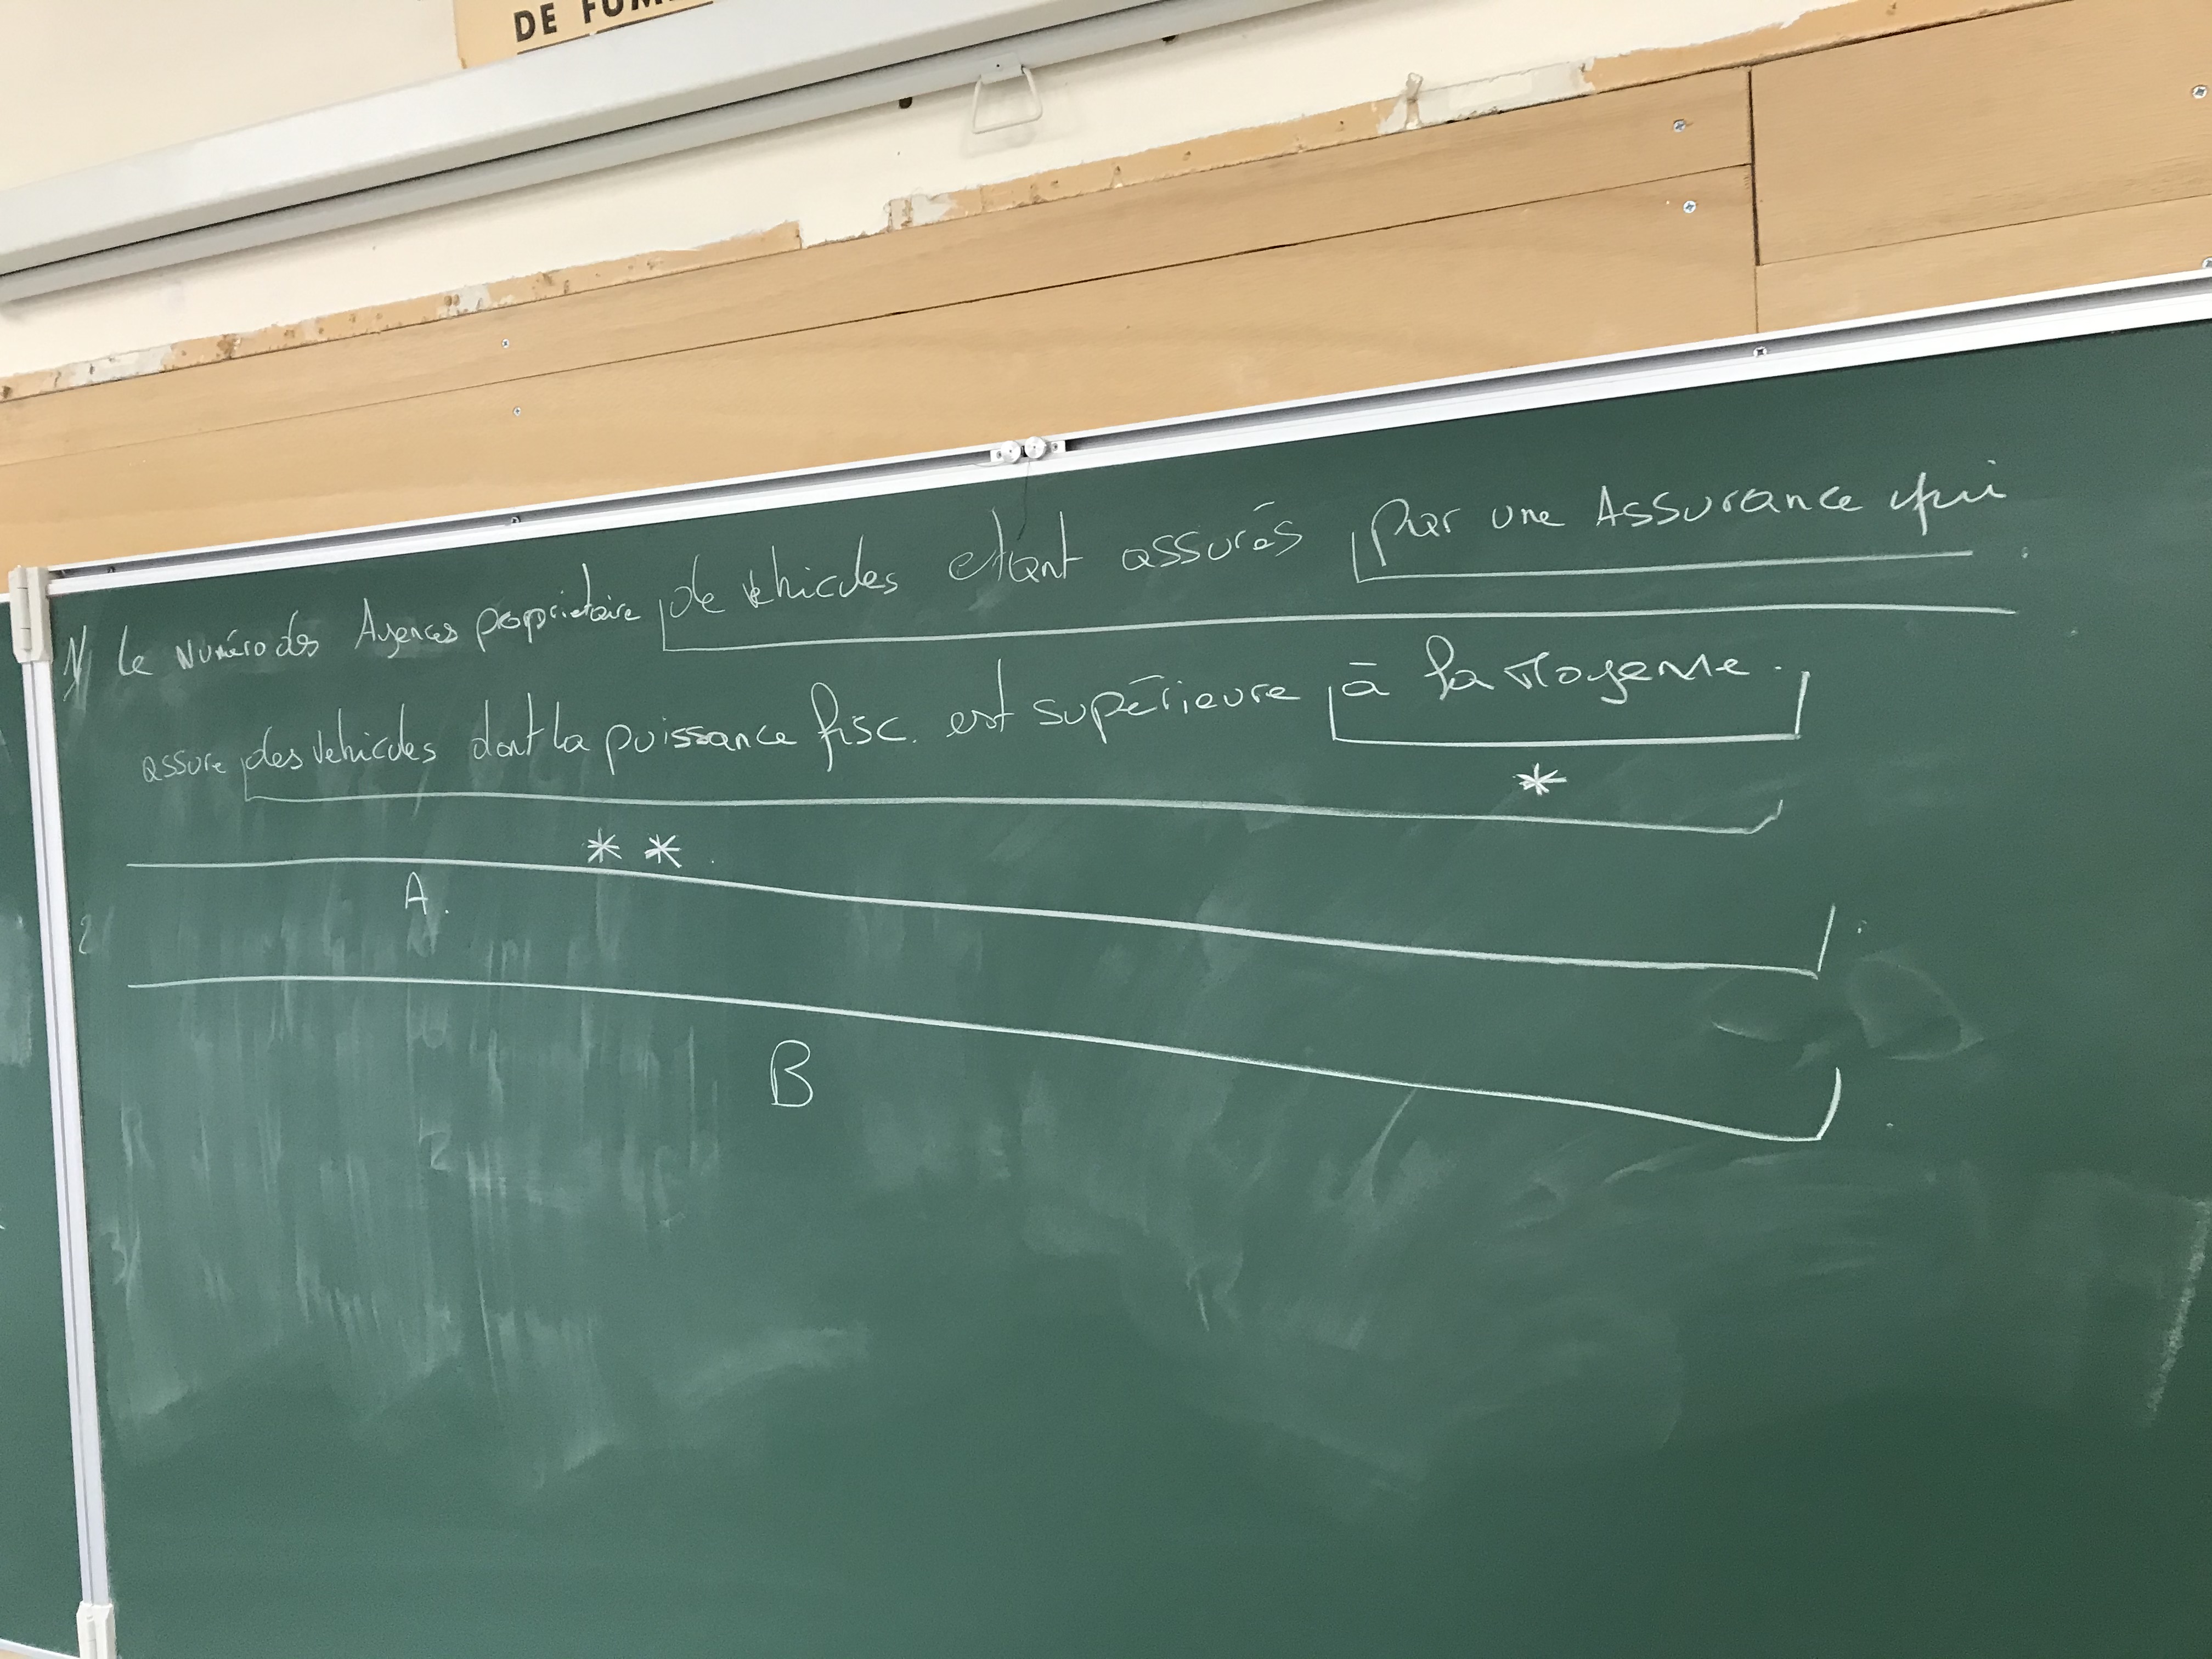 DE FUM
1/ Le Numéro des Agences proprietaire de vehicules etant assurés par une Assurance qui
assure des vehicules dont la puissance fisc. est supérieure à la Moyenne.
*
* *
A.
2
B